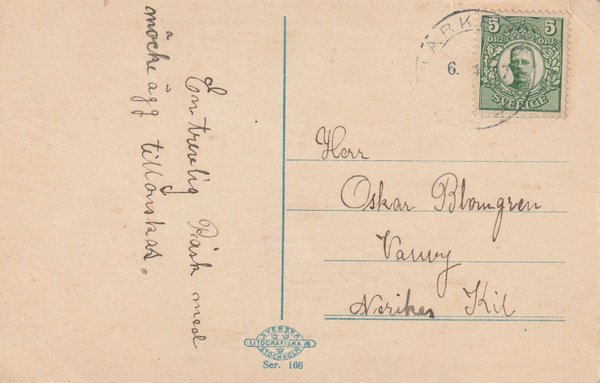 En trevlig Påsk med
möcke ägg tillönskas.
5 5
ÖRE ÖRE
SVERIGE
6.
Herr
Oskar Blomgren
Nerikes Kil
SVENSKA
LITOGRAFISKA AB
STOCKHOLM
Ser. 166